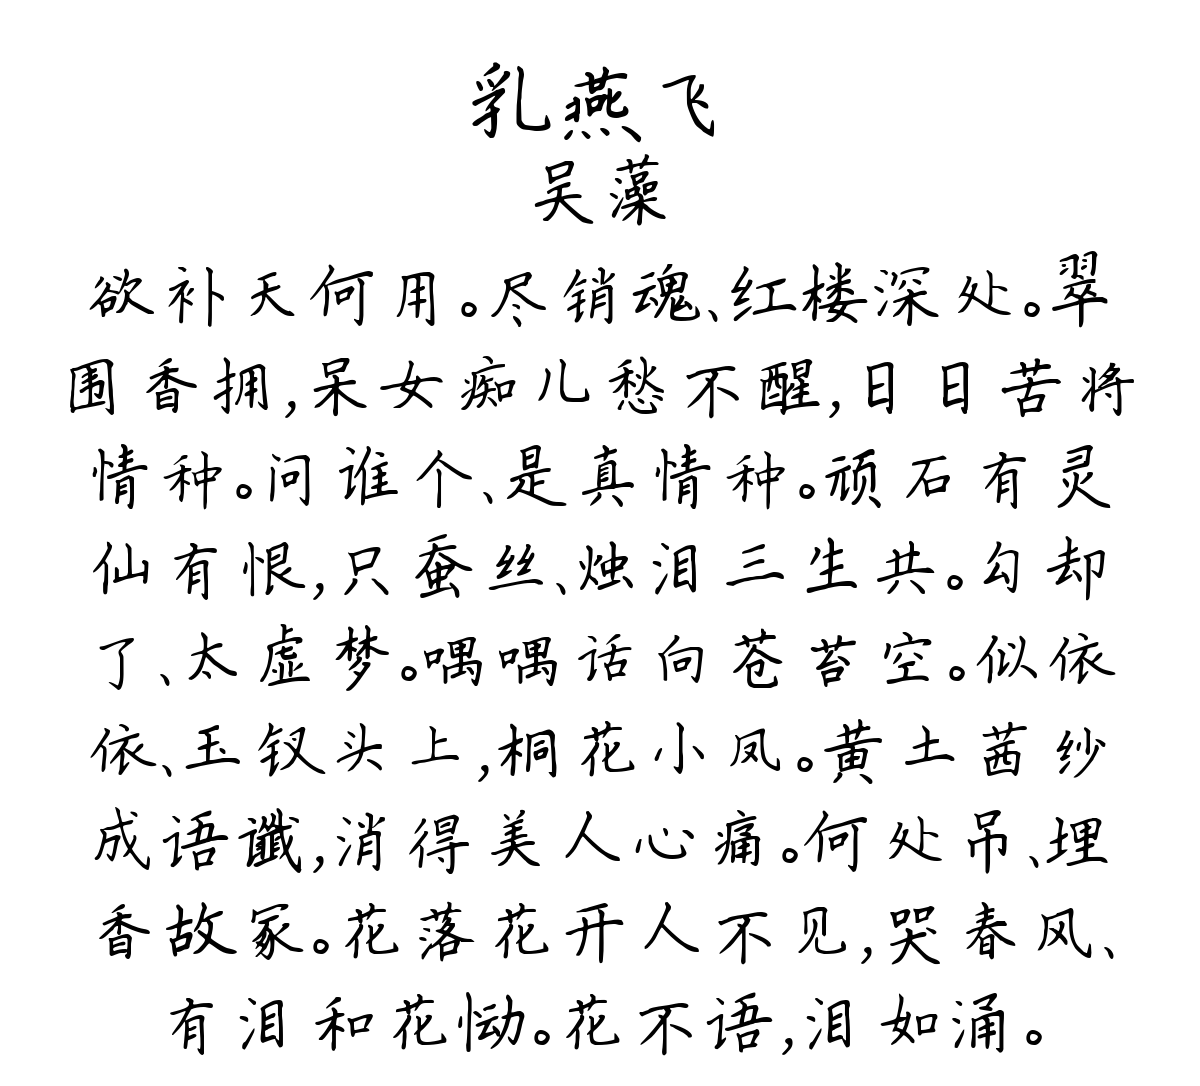 乳燕飞
吴藻
欲补天何用。尽销魂、红楼深处。翠
围香拥,呆女痴儿愁不醒,日日苦将
情种。问谁个、是真情种。顽石有灵
仙有恨,只蚕丝、烛泪三生共。勾却
了、太虚梦。喁喁话向苍苔空。似依
依、玉钗头上,桐花小凤。黄土茜纱
成语谶,消得美人心痛。何处吊、埋
香故冢。花落花开人不见,哭春风、
有泪和花恸。花不语,泪如涌。